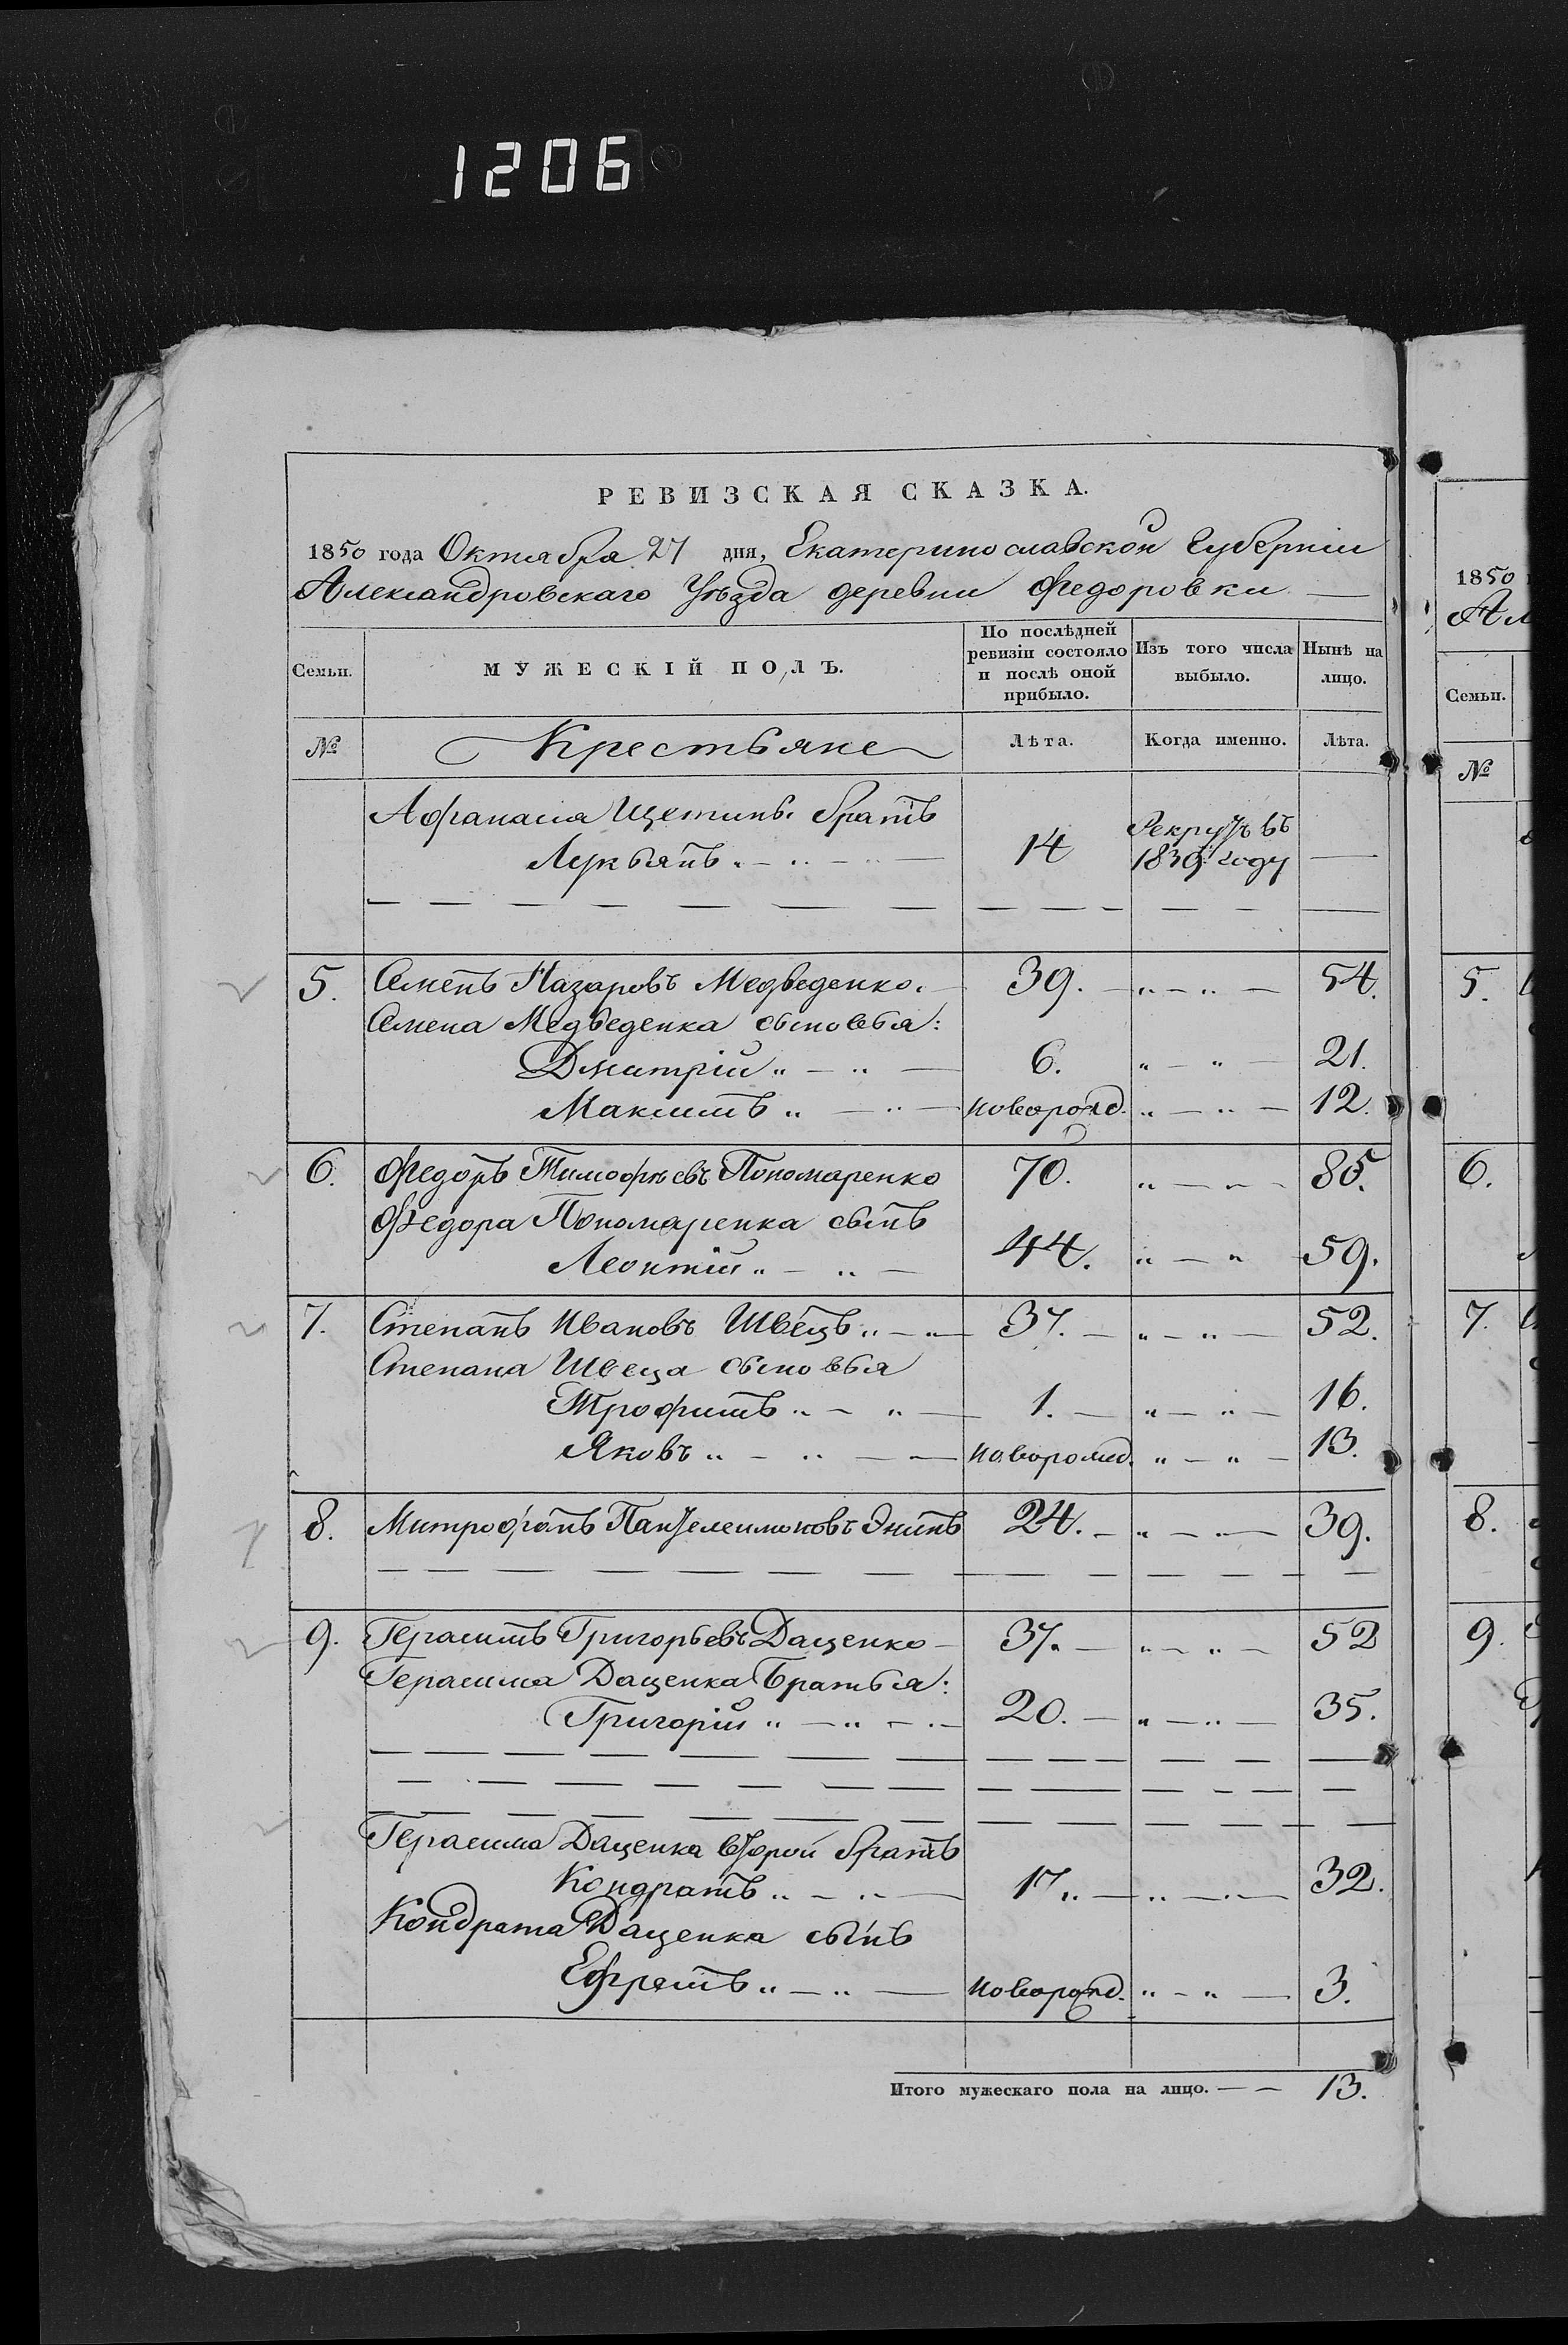 1206
РЕВИЗСКАЯ СКАЗКА.
1850 года Октября 27 дня, Екатеринославской Губерніи
Александровскаго Уѣзда деревни Федоровки —
Семьи. МУЖЕСКІЙ ПОЛЪ. По послѣдней ревизіи состояло и послѣ оной прибыло. Изъ того числа выбыло. Нынѣ на лицо.
№ Крестьяне Лѣта. Когда именно. Лѣта.
Афанасія Щетины братъ
Лукьянъ 14 Рекрутъ въ 1839 году —
5. Семенъ Назаровъ Медведенко. 39. 54.
Семена Медведенка сыновья:
Дмитрій 6. 21.
Максимъ новорожд. 12.
6. Федоръ Тимофѣевъ Пономаренко 70. 85.
Федора Пономаренка сынъ
Леонтій 44. 59.
7. Степанъ Ивановъ Швецъ 37. 52.
Степана Швеца сыновья
Трофимъ 1. 16.
Яковъ новорожд. 13.
8. Митрофанъ Пантелеимоновъ 24. 39.
9. Герасимъ Григорьевъ Даценко 37. 52
Герасима Даценка Братья:
Григорій 20. 35.
Герасима Даценка второй братъ
Кондратъ 17. 32.
Кондрата Даценка сынъ
Ефремъ новорожд. 3.
Итого мужескаго пола на лицо. — — 13.
1850
Ал
Семьи.
№
5.
6.
7.
8.
9.